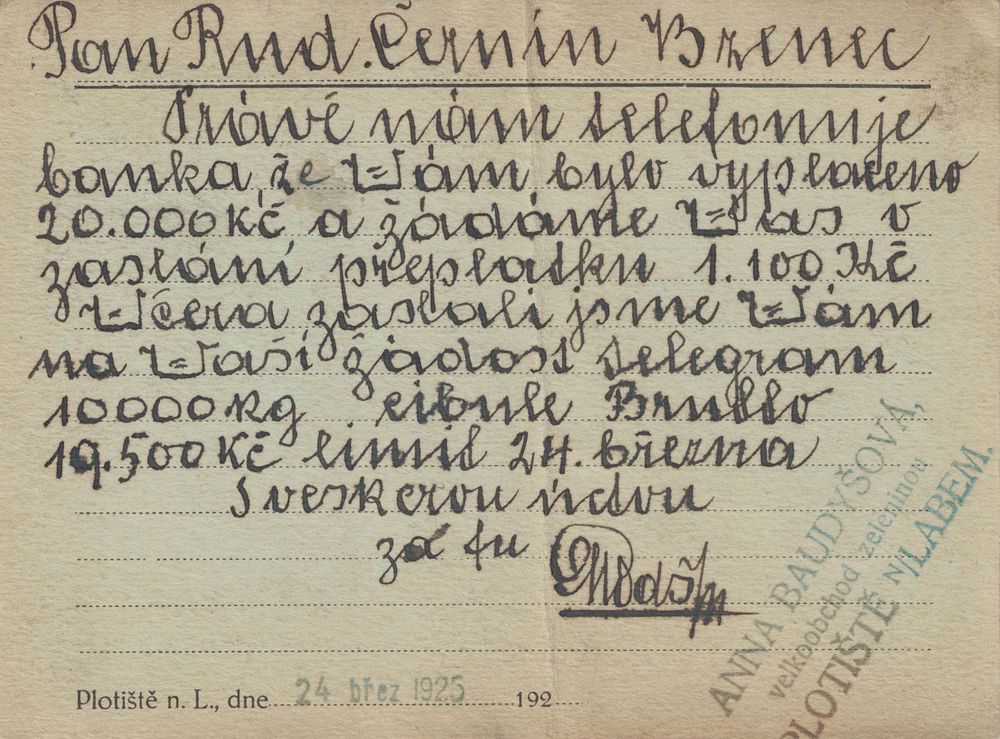 Pan Rud. Černín Brenec
Právě nám telefonuje
banka, že Vám bylo vyplaceno
20.000 Kč a žádáme Vás o
zaslání přeplatku 1.100 Kč
Včera zaslali jsme Vám
na Vaší žádost telegram
10000 kg cibule Brutto
19.500 Kč limit 24. března
S veškerou úctou
za fu
Plotiště n. L., dne 24 břez 1925 192
ANNA BAUDYŠOVÁ,
velkoobchod zeleninou
PLOTIŠTĚ N/LABEM.